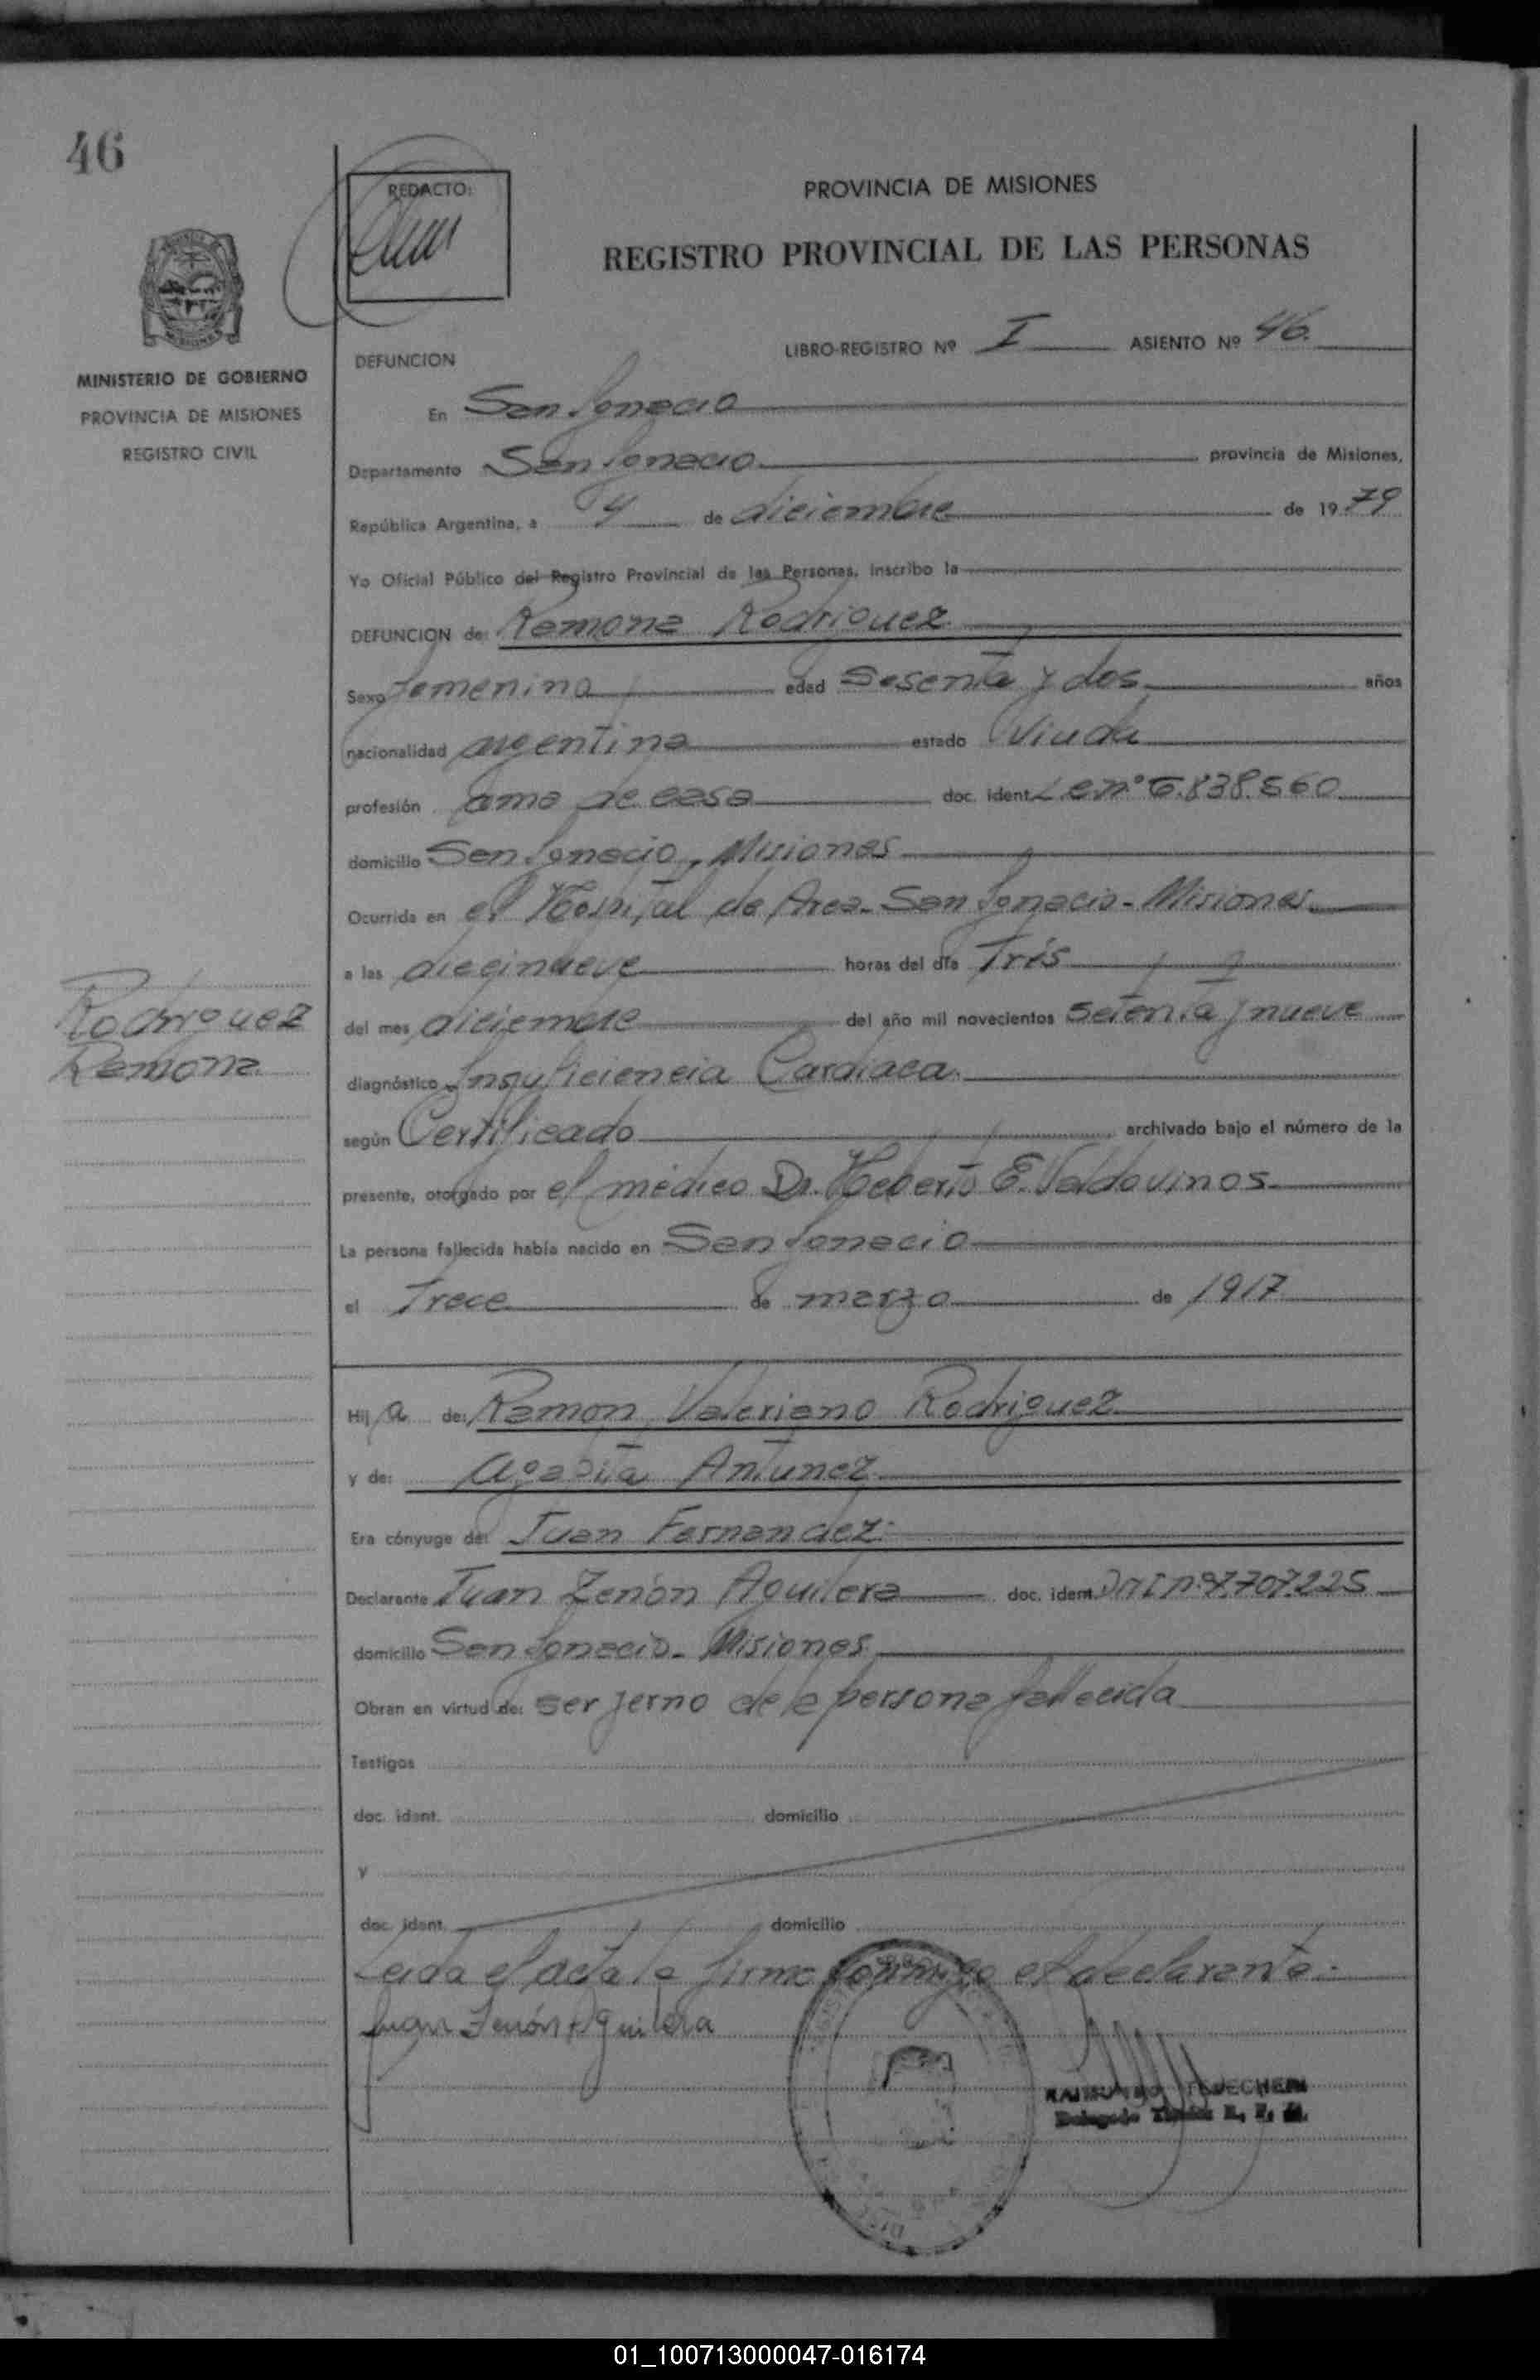 46
REDACTO:
PROVINCIA DE MISIONES
REGISTRO PROVINCIAL DE LAS PERSONAS
LIBRO-REGISTRO Nº I ASIENTO Nº 46.
DEFUNCION
MINISTERIO DE GOBIERNO
PROVINCIA DE MISIONES
REGISTRO CIVIL
En San Ignacio
Departamento San Ignacio provincia de Misiones,
República Argentina, a 4 de diciembre de 1979
Yo Oficial Público del Registro Provincial de las Personas, inscribo la
DEFUNCION de: Ramona Rodriguez
Sexo femenino edad Sesenta y dos años
nacionalidad argentina estado Viuda
profesión ama de casa doc. ident. L e nº 6.838.560
domicilio San Ignacio, Misiones
Ocurrida en el Hospital de Area - San Ignacio - Misiones
a las diecinueve horas del día Trés
del mes diciembre del año mil novecientos Setenta y nueve
Rodriguez
Ramona
diagnóstico Insuficiencia Cardiaca.
según Certificado archivado bajo el número de la
presente, otorgado por el médico Dr. Heberto E. Valdovinos
La persona fallecida había nacido en San Ignacio
el Trece de marzo de 1917
Hija de: Ramon Valeriano Rodriguez
y de: Agapita Antunez
Era cónyuge de: Juan Fernandez
Declarante Juan Zenón Aguilera doc. ident. DNI nº 7.707.225
domicilio San Ignacio - Misiones
Obran en virtud de: ser yerno de la persona fallecida
Testigos
doc. ident. domicilio
y
doc. ident. domicilio
Leida el acta la firma conmigo el declarante.
Juan Zenón Aguilera
01_100713000047-016174